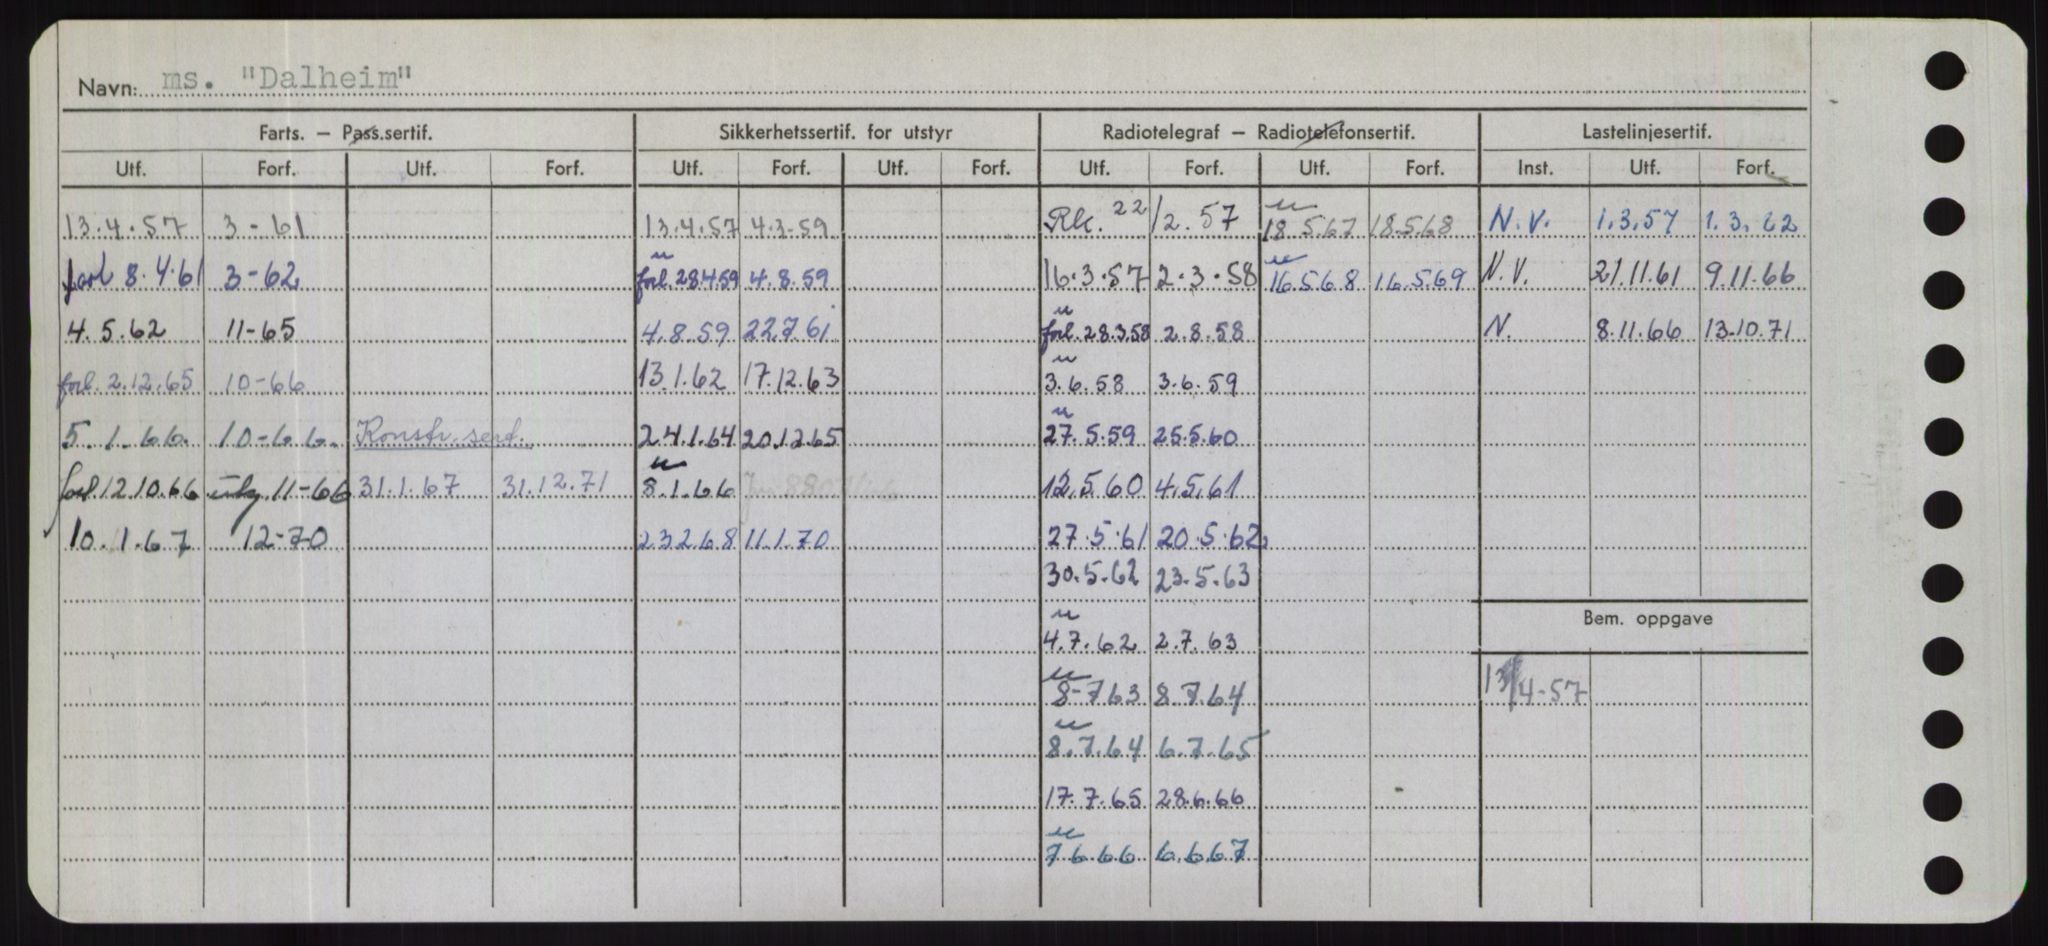 Navn: ms. "Dalheim"
Farts. — Pass.sertif. Sikkerhetssertif. for utstyr Radiotelegraf — Radiotelefonsertif. Lastelinjesertif.
Utf. Forf. Utf. Forf. Utf. Forf. Utf. Forf. Utf. Forf. Utf. Forf. Inst. Utf. Forf.
13.4.57 3-61 13.4.57 4.3.59 Rk. 22/2.57 u 18.5.67 18.5.68 N.V. 1.3.57 1.3.62
forl 8.4.61 3-62 u forl. 28.4.59 4.8.59 16.3.57 2.3.58 u 16.5.68 16.5.69 N.V. 21.11.61 9.11.66
4.5.62 11-65 4.8.59 22.7.61 u forl. 28.3.58 2.8.58 N. 8.11.66 13.10.71
forl. 2.12.65 10-66 13.1.62 17.12.63 u 3.6.58 3.6.59
5.1.66. 10-66. Konstr. sert. 24.1.64 20.12.65 u 27.5.59 25.5.60
forl 12.10.66 utg. 11-66 31.1.67 31.12.71 u 8.1.66 12.5.60 4.5.61
10.1.67 12-70 23.2.68 11.1.70 27.5.61 20.5.62
30.5.62 23.5.63
Bem. oppgave
u 4.7.62 2.7.63
u 8-7.63 8.7.64 13/4-57
u 8.7.64 6.7.65
17.7.65 28.6.66
u 7.6.66 6.6.67